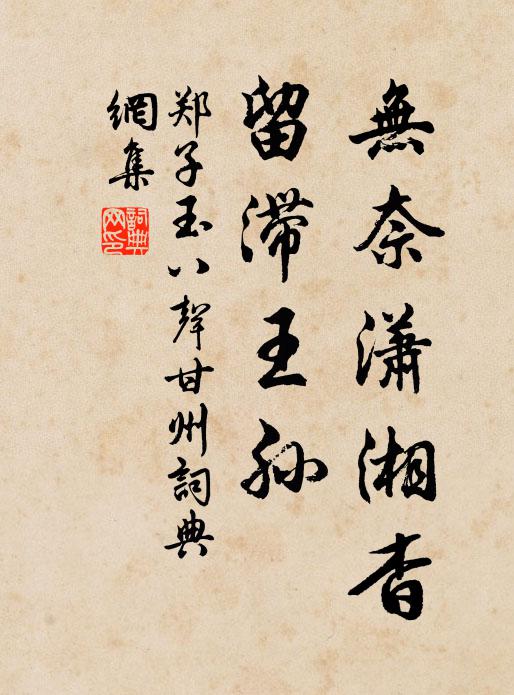 無奈瀟湘杳
留滯王孫
郑子玉八聲甘州詞典
網集
詞典
网印